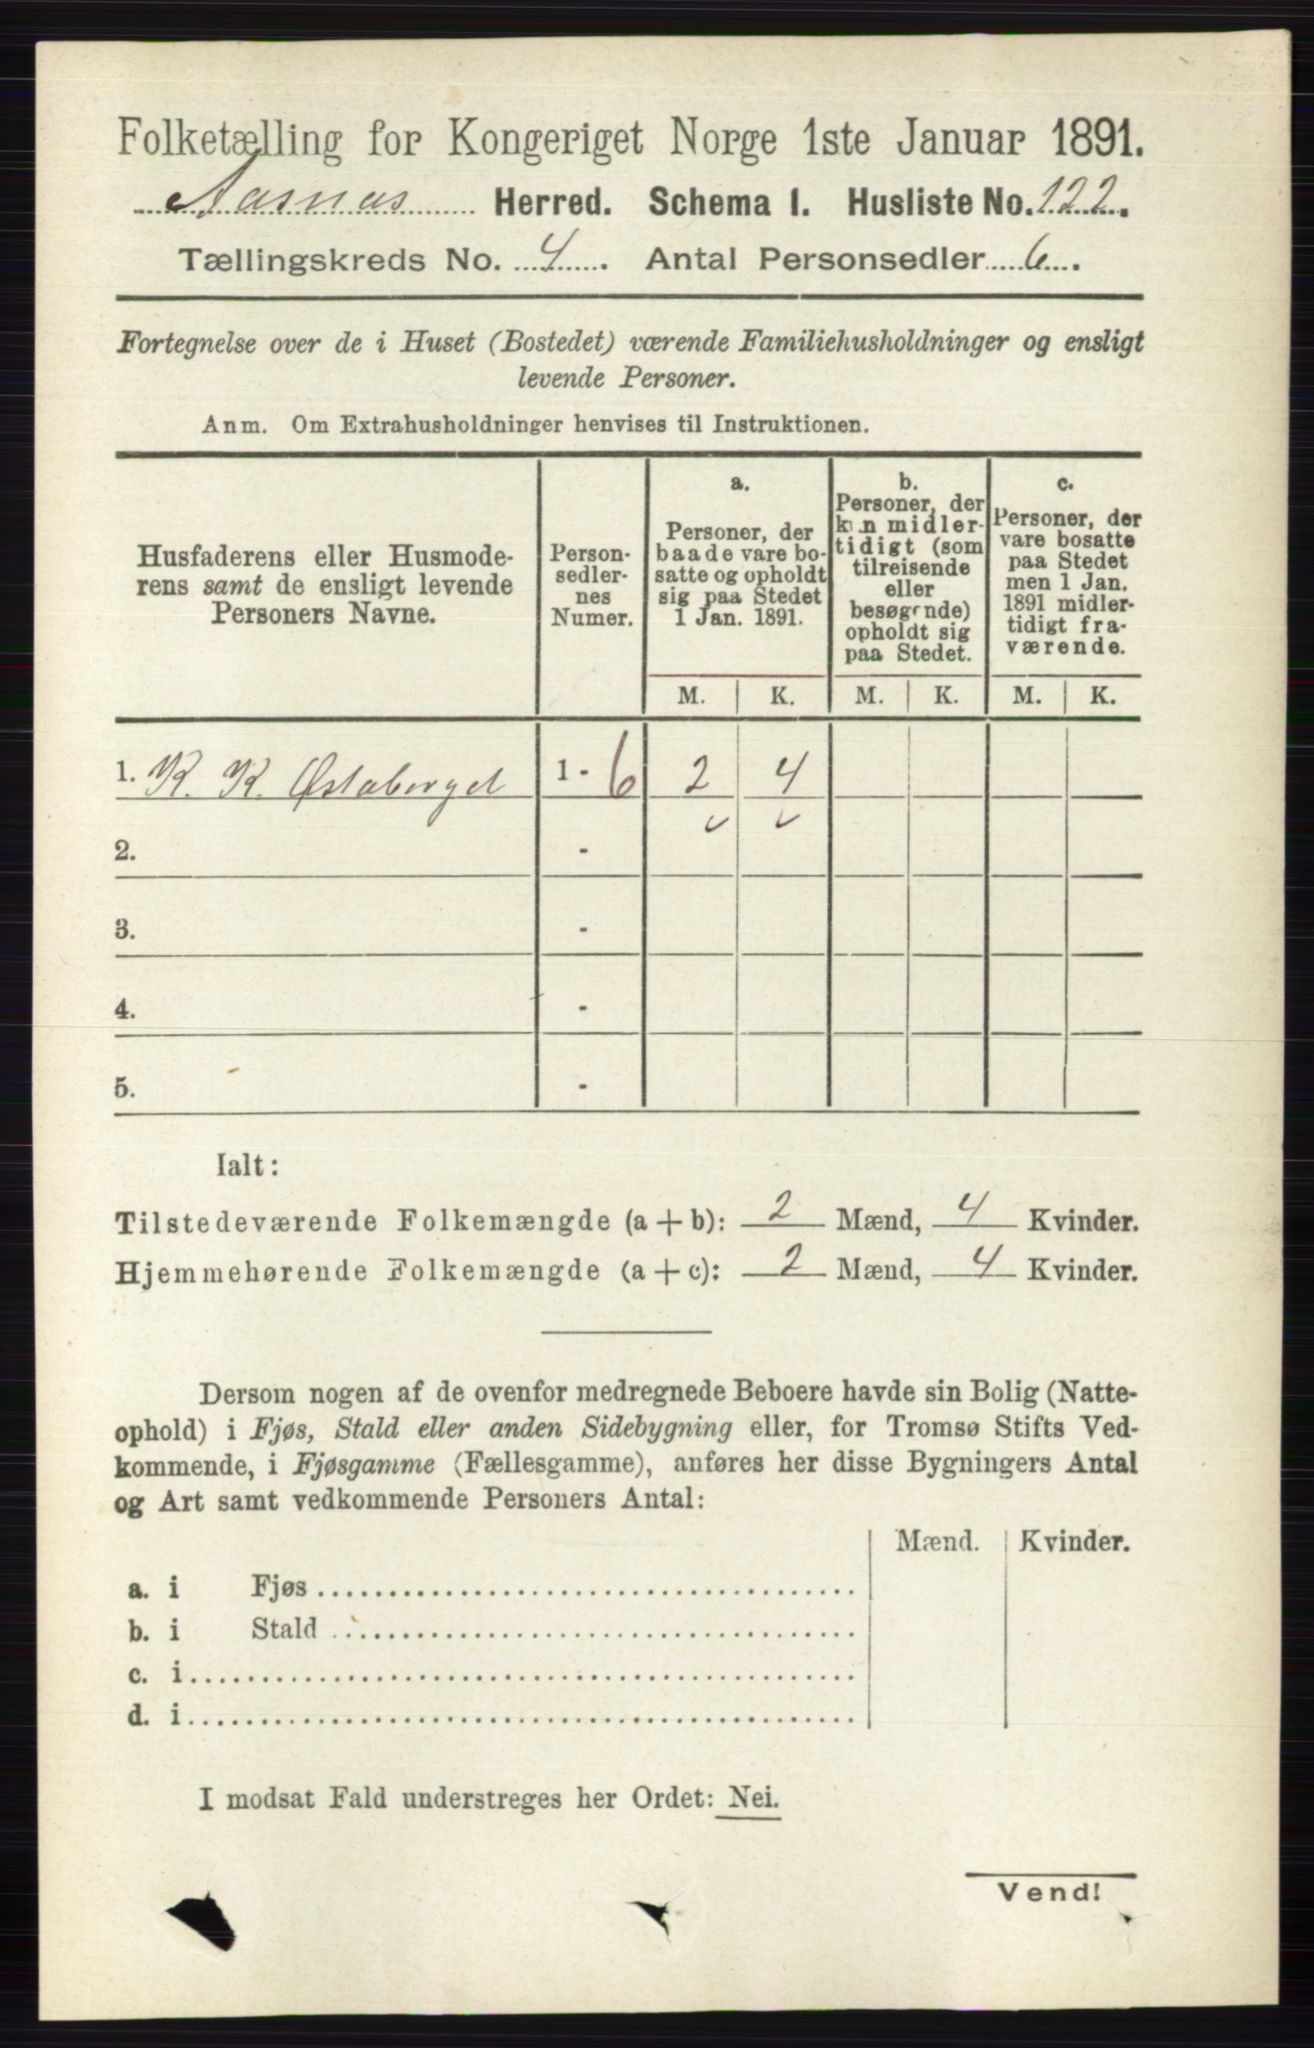 Folketælling for Kongeriget Norge 1ste Januar 1891.
Aasnas Herred. Schema I. Husliste No. 122.
Tællingskreds No. 4. Antal Personsedler 6.
Fortegnelse over de i Huset (Bostedet) værende Familiehusholdninger og ensligt
levende Personer.
Anm. Om Extrahusholdninger henvises til Instruktionen.
Husfaderens eller Husmode-
rens samt de ensligt levende
Personers Navne.
Person-
sedler-
nes
Numer.
a.
Personer, der
baade vare bo-
satte og opholdt
sig paa Stedet
1 Jan. 1891.
b.
Personer, der
kun midler-
tidigt (som
tilreisende
eller
besøgende)
opholdt sig
paa Stedet.
c.
Personer, der
vare bosatte
paa Stedet
men 1 Jan.
1891 midler-
tidigt fra-
værende.
M. K. M. K. M. K.
1. K. K. Østaberget 1 - 6 2 4
2. -
3. -
4. -
5. -
Ialt:
Tilstedeværende Folkemængde (a + b): 2 Mænd, 4 Kvinder.
Hjemmehørende Folkemængde (a + c): 2 Mænd, 4 Kvinder.
Dersom nogen af de ovenfor medregnede Beboere havde sin Bolig (Natte-
ophold) i Fjøs, Stald eller anden Sidebygning eller, for Tromsø Stifts Ved-
kommende, i Fjøsgamme (Fællesgamme), anføres her disse Bygningers Antal
og Art samt vedkommende Personers Antal:
Mænd. Kvinder.
a. i Fjøs
b. i Stald
c. i
d. i
I modsat Fald understreges her Ordet: Nei.
Vend!